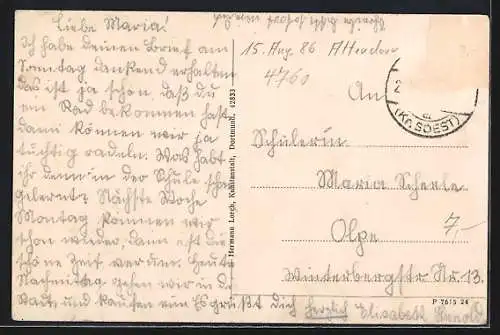 Liebe Maria!
Ich habe deinen Brief am
Sonntag dankend erhalten
das ist ja schön, daß du
ein Rad bekommen hast
dann können wir ja
tüchtig radeln. Was habt
ihr denn in der Schule schon
gelernt? Nächste Woche
Montag kommen wir
schon wieder, dann ist die
schöne Zeit vorbei. Heute
Nachmittag gehen wir in die
Stadt und kaufen ein. Es grüßt dich herzlich Elisabeth
Hermann Lorch, Kunstanstalt, Dortmund. 42833
15. Aug 86 Attendorn
4760
An
2
(KR. SOEST)
Schülerin
Maria Scherle
Olpe
7,-
Winterbergstr. Nr. 13.
P 7615 24